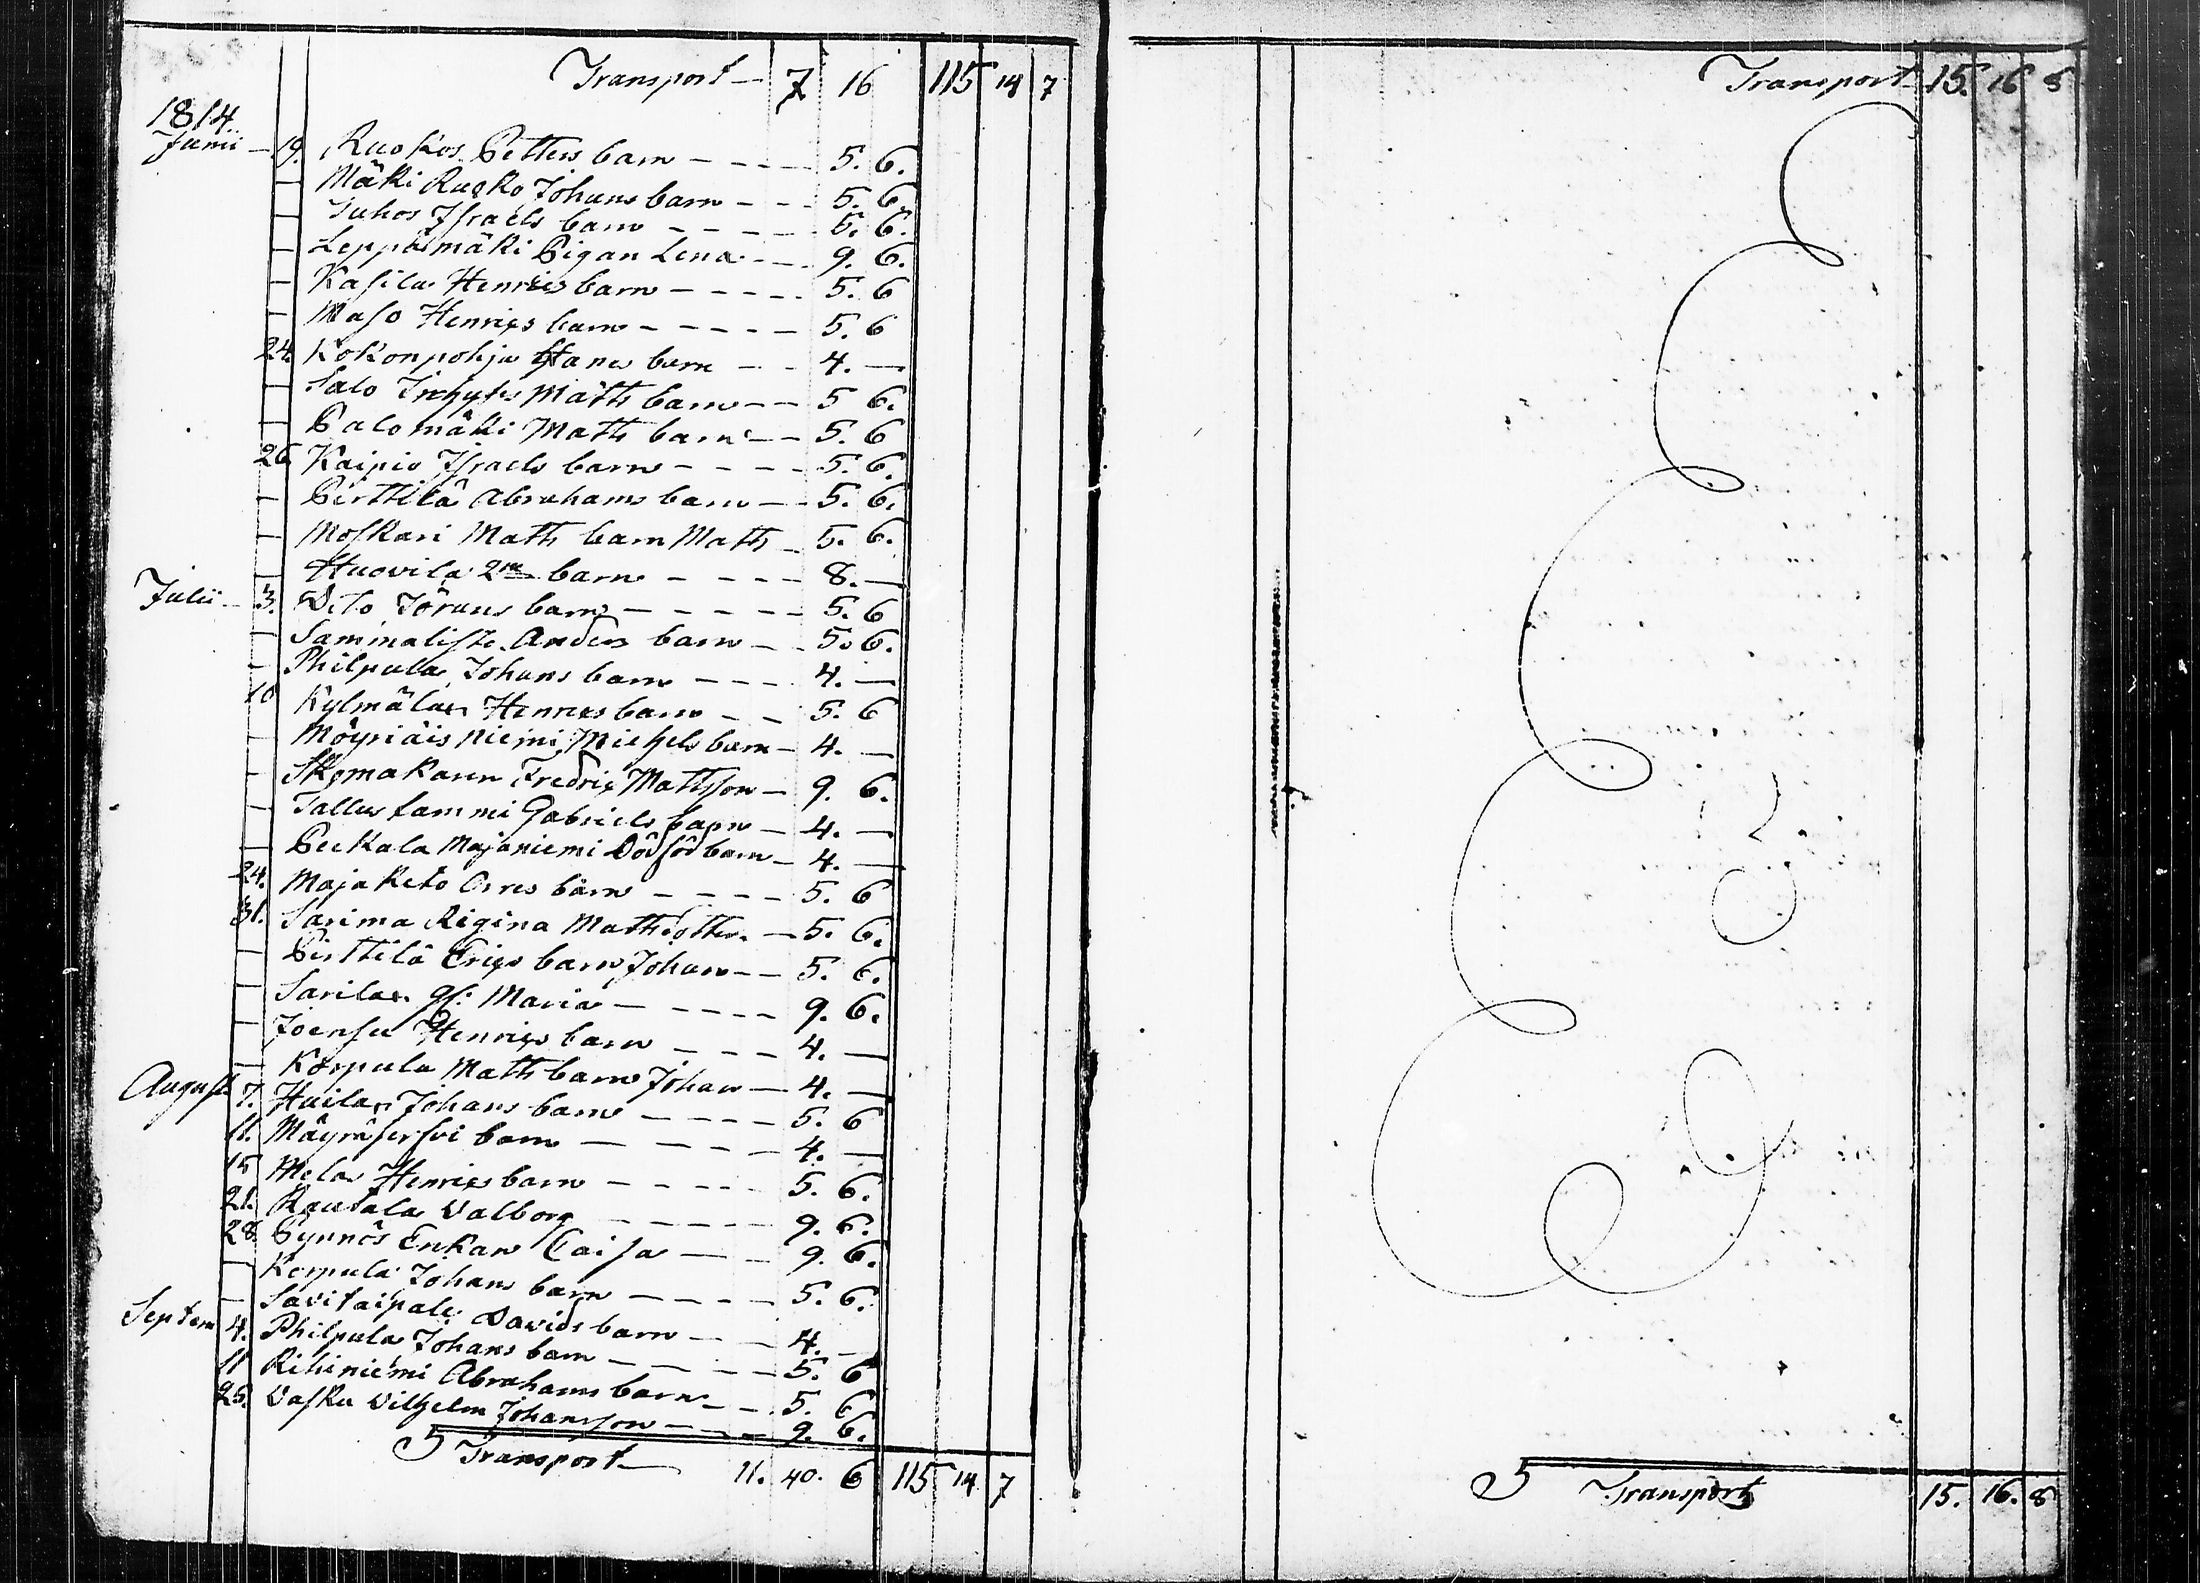 Transport — 7 16 115 14 7
1814
Junii — 19. Ruokos Petters barn — — — — 5. 6.
— Mäki Ruoko Johans barn — — — 5. 6.
— Juhos Israels barn — — — — 5. 6.
— Leppämäki Pigan Lena — — 9. 6.
— Kasila Henrics barn — — — — 5. 6
— Maso Henrics barn — — — — — 5. 6
24. Kokonpohja Hans barn — — 4. —
— Salo Matts barn — — 5 6.
— Palomäki Matts barn — — 5. 6
26 Kaipio Israels barn — — — — 5. 6.
— Pirttilä Abrahams barn — — 5. 6.
— Moskari Matts barn Matts — 5. 6.
— Huovila 2ne barn — — — — 8. —
Julii — 3. Dito Jörans barn — — — — — 5. 6
— Sammaliste Anders barn — — 5. 6.
— Philpula Johans barn — — — — 4. —
10 Kylmälax Henrics barn — — 5. 6
— Möyriäis niemi Michels barn — 4. —
— Skomakaren Fredric Mattsson — 9. 6.
— Tallus tammi Gabriels barn — 4. —
— Peekala Majaniemi Dödföd barn — 4. —
24. Majaketo Ories barn — — — — 5. 6
31. Sarima Rigina Mattsdotter — 5. 6.
— Pirttilä Erics barn Johan — — 5. 6.
— Sarilax Maria — — — — — 9. 6.
— Joensu Henrics barn — — — 4. —
— Korpula Matts barn Johan — 4. —
August 7. Huilan Johans barn — — — — 5. 6
11. barn — — — — — 4. —
15 Mela Henrics barn — — — — — 5. 6.
21. Rautala Valborg — — — — — 9. 6.
28. Pynnös Enkan Caisa — — — 9. 6.
— Korpula Johans barn — — — — 5. 6.
— Savitaipale Davids barn — — — 4. —
Septem 4. Philpula Johans barn — — — — 5. 6
11 Rihiniemi Abrahams barn — — 5. 6
25. Vasku Vilhelm Johansson — — — 9. 6.
Transport — 11. 40. 6 115 14 7
Transport 15. 16 8
Transport 15. 16. 8